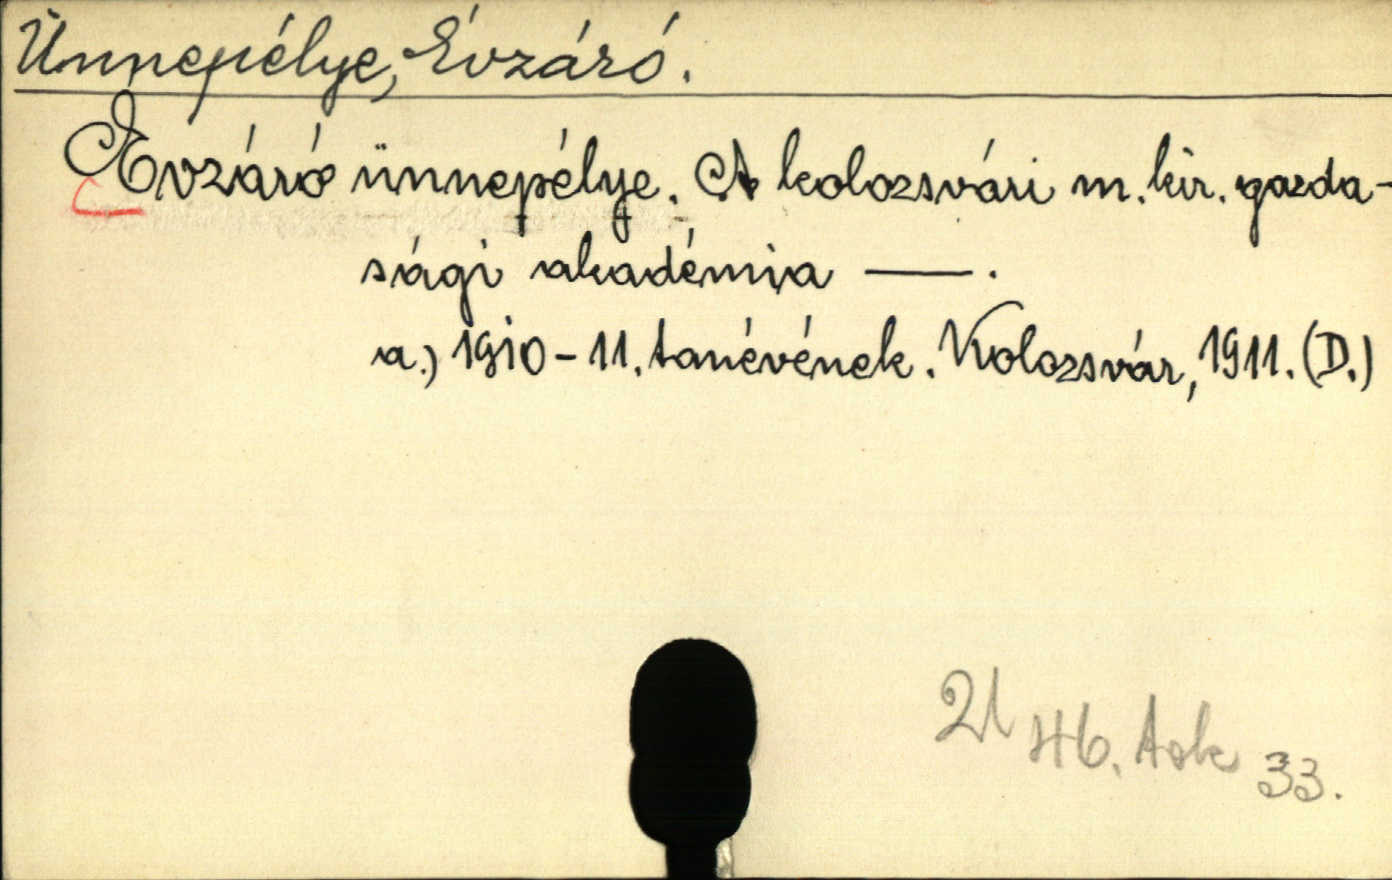 Ünnepélye, Évzáró.
Évzáró ünnepélye. A kolozsvári m. kir. gazda-
sági akadémia —.
a.) 1910-11. tanévének. Kolozsvár, 1911. (D.)
21 46. Ask 33.